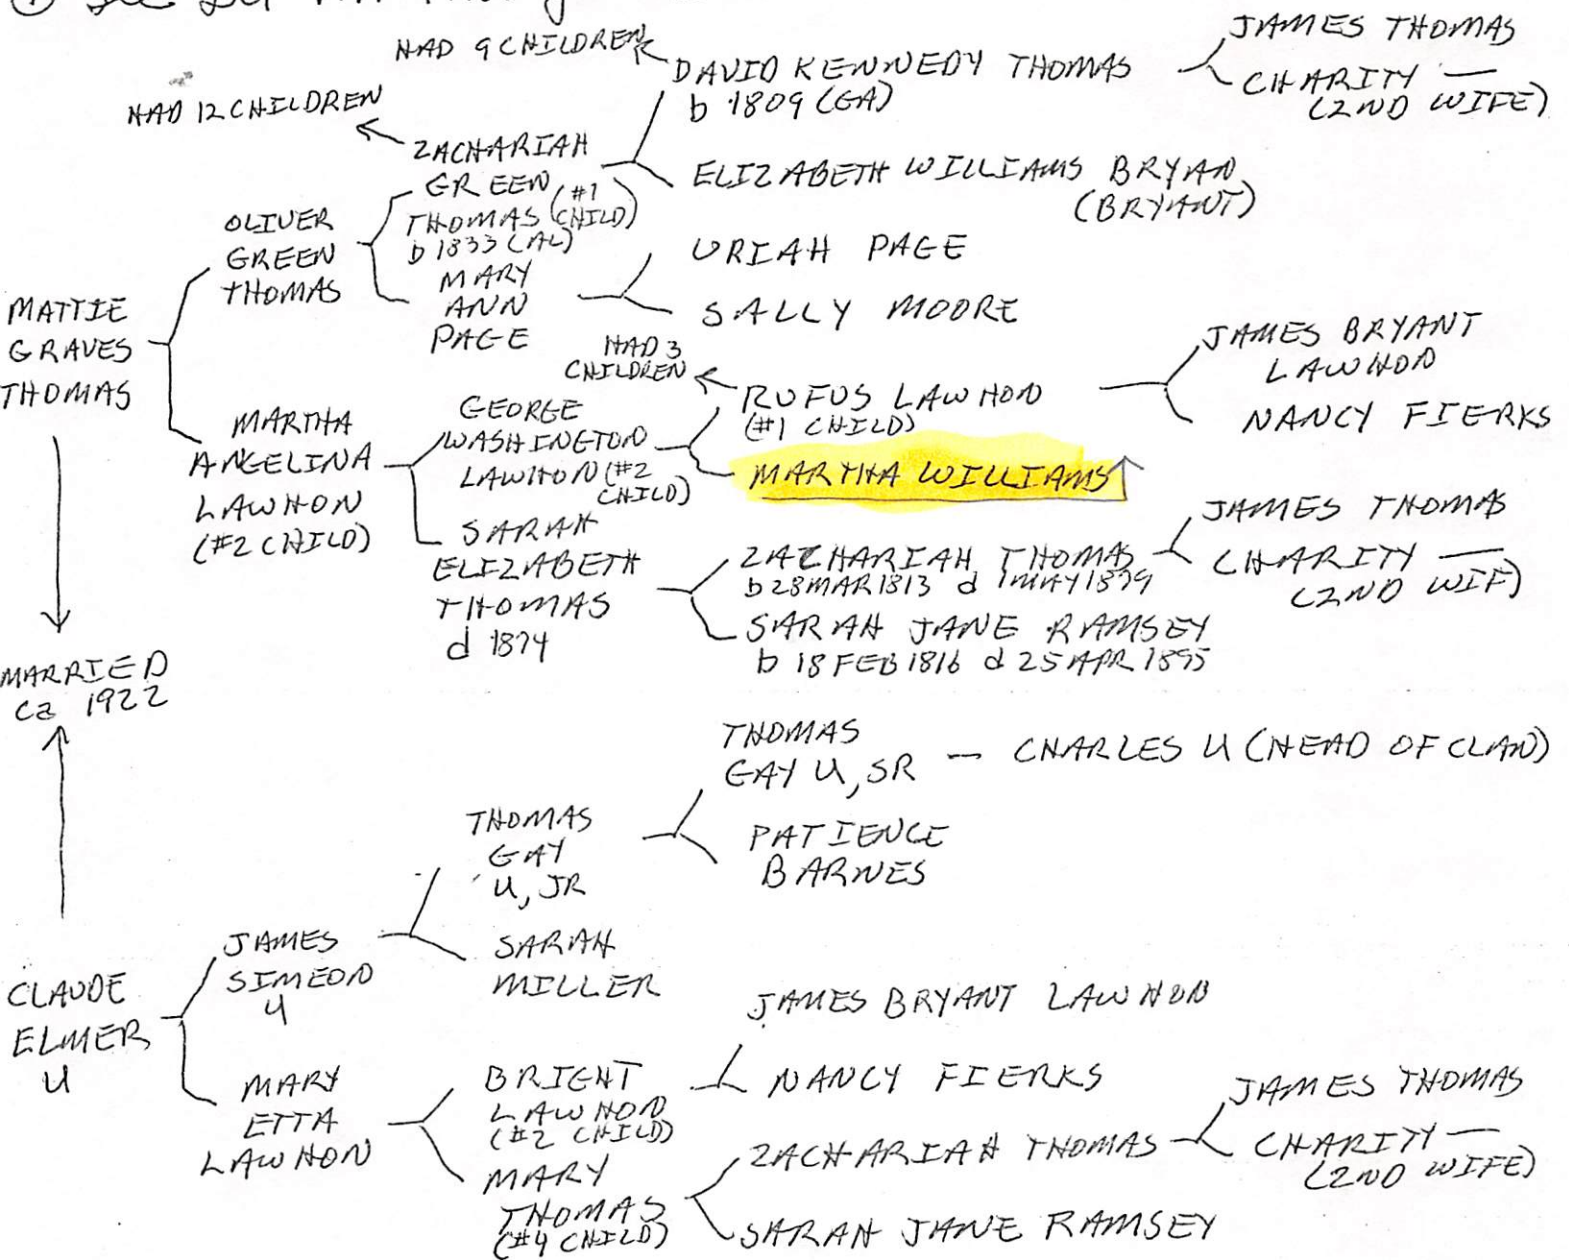 HAD 9 CHILDREN
HAD 12 CHILDREN
DAVID KENNEDY THOMAS
b 1809 (GA)
JAMES THOMAS
CHARITY —
(2ND WIFE)
ZACHARIAH
GREEN
THOMAS (#1
CHILD)
b 1833 (AL)
ELIZABETH WILLIAMS BRYAN
(BRYANT)
OLIVER
GREEN
THOMAS
MARY
ANN
PAGE
URIAH PAGE
SALLY MOORE
MATTIE
GRAVES
THOMAS
HAD 3
CHILDREN
RUFUS LAWHON
(#1 CHILD)
JAMES BRYANT
LAWHON
NANCY FIERKS
MARTHA
ANGELINA
LAWHON
(#2 CHILD)
GEORGE
WASHINGTON
LAWHON (#2
CHILD)
MARTHA WILLIAMS
SARAH
ELIZABETH
THOMAS
d 1874
ZACHARIAH THOMAS
b 28 MAR 1813 d 1 MAY 1879
JAMES THOMAS
CHARITY —
(2ND WIF)
SARAH JANE RAMSEY
b 18 FEB 1816 d 25 APR 1895
MARRIED
ca 1922
THOMAS
GAY U, SR — CHARLES U (HEAD OF CLAN)
THOMAS
GAY
U, JR
PATIENCE
BARNES
JAMES
SIMEON
U
SARAH
MILLER
CLAUDE
ELMER
U
JAMES BRYANT LAWHON
NANCY FIERKS
MARY
ETTA
LAWHON
BRIGHT
LAWHON
(#2 CHILD)
MARY
THOMAS
(#4 CHILD)
ZACHARIAH THOMAS
JAMES THOMAS
CHARITY —
(2ND WIFE)
SARAH JANE RAMSEY